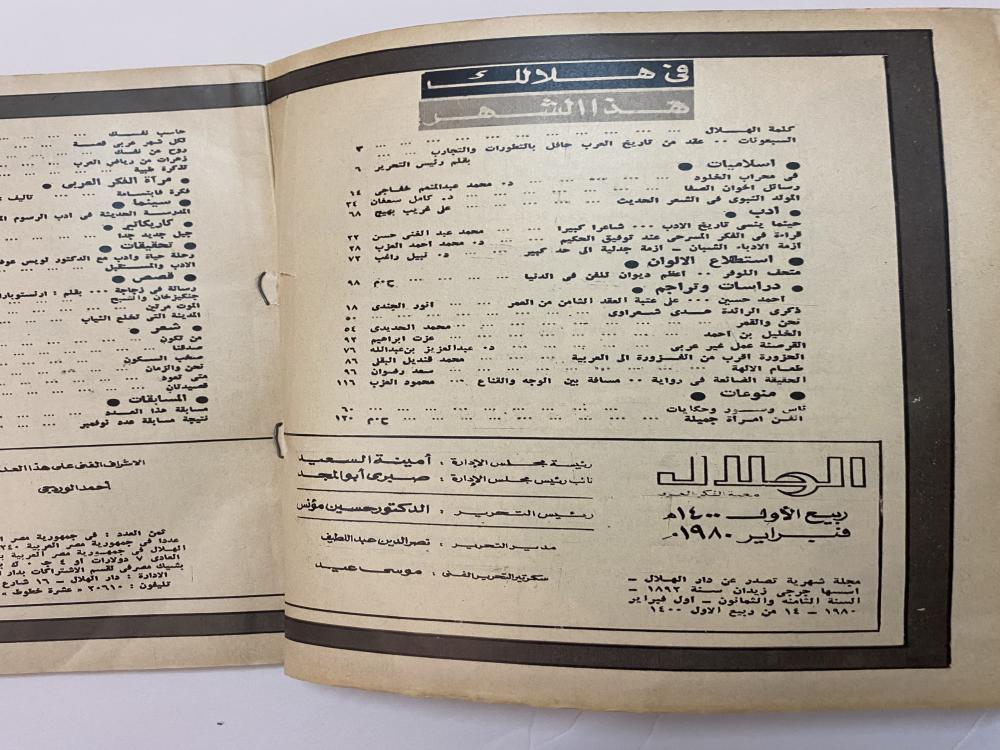 فى هلالك
هذا الشهر
كلمة الهلال ... ... ... ... ... ... ... ٣
السبعونات .. عقد من تاريخ العرب حافل بالتطورات والتجارب ...
بقلم رئيس التحرير ٦
● اسلاميات ●
فى محراب الخلود ... ... ... د. محمد عبدالمنعم خفاجى ١٤
رسائل اخوان الصفا ... ... ... د. كامل سعفان ٢٤
المولد النبوى فى الشعر الحديث ... ... على غريب بهيج ٦٨
● أدب ●
حينما ينسى تاريخ الادب ... شاعرا كبيرا ... محمد عبد الغنى حسن ٢٢
قراءة فى الفكر المسرحى عند توفيق الحكيم د. محمد احمد العزب ٢٨
ازمة الادباء الشبان - ازمة جدلية الى حد كبير ... د. نبيل راغب ٧٢
● استطلاع الالوان ●
متحف اللوفر .. اعظم ديوان للفن فى الدنيا ... ح.م ٩٨
● دراسات وتراجم ●
احمد حسين ... على عتبة العقد الثامن من العمر ... انور الجندى ١٨
ذكرى الرائدة هدى شعراوى ... ... ... ... ٥٠
نحن والقمر ... ... ... ... محمد الحديدى ٥٤
الخليل بن احمد ... ... ... عزت ابراهيم ٩٢
القرصنة عمل غير عربى ... د. عبدالعزيز بن عبدالله ٧٦
الحزورة اقرب من الفزورة الى العربية ... محمد قنديل البقلى ٨٦
طعام الالهة ... ... ... ... سعد رضوان ٩٦
الحقيقة الضائعة فى رواية .. مسافة بين الوجه والقناع ... محمود العزب ١١٦
● منوعات ●
ناس وصور وحكايات ... ... ... ... ٦٠
اتفن امرأة جميلة ... ... ... ح.م ١٢٠
الهلال
مجلة الفكر العربى
ربيع الأول ١٤٠٠هـ
فبراير ١٩٨٠م
مجلة شهرية تصدر عن دار الهلال -
اسسها جرجى زيدان سنة ١٨٩٢ -
السنة الثامنة والثمانون - اول فبراير
١٩٨٠ - ١٤ من ربيع الاول ١٤٠٠
رئيسة مجلس الإدارة : أمينة السعيد
نائب رئيس مجلس الإدارة : صبرى أبو المجد
رئيس التحرير : الدكتور حسين مؤنس
مدير التحرير : نصر الدين عبد اللطيف
سكرتير التحرير الفنى : موسى عيد
حاسب نفسك ... ... ...
لكل شهر عربى قصة ... ...
روح عن نفسك ... ...
زهرات من رياض العرب ...
تذكرة طبية ... ... ...
● مرآة الفكر العربى ●
فكرة فابتسامة ... ... تأليف :
● سينما ●
المدرسة الحديثة فى ادب الرسوم
● كاريكاتير ●
جيل جديد جدا ... ...
● تحقيقات ●
رحلة حياة وادب مع الدكتور لويس عوض
الادب والمستقبل ... ...
● قصص ●
رسالة فى زجاجة ... بقلم :
جنكيزخان والشبح ...
الموت مرتين ... ...
المدينة التى تخلع الثياب ...
● شعر ●
من تكون ... ... ...
صدفنا ... ... ...
صخب السكون ... ...
نحن والزمان ... ...
متى تعود ... ...
قصيدتان ... ...
● المسابقات ●
مسابقة هذا العدد ... ...
نتيجة مسابقة عدد نوفمبر ...
الاشراف الفنى على هذا العد
أحمد الوردجى
ثمن العدد : فى جمهورية مصر
عددا فى جمهورية مصر العربية ٢٤٠
الهلال فى جمهورية مصر العربية
العادى ٧ دولارات او ٤ ج . ك
بشيك مصرفى لقسم الاشتراكات بدار
الادارة : دار الهلال - ١٦ شارع
تليفون : ٢٠٦١٠ « عشرة خطوط »